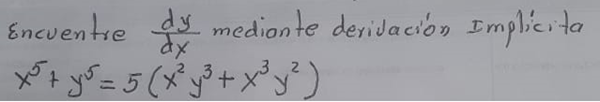 Encuentre dy/dx mediante derivación Implícita
x⁵ + y⁵ = 5 (x² y³ + x³ y²)